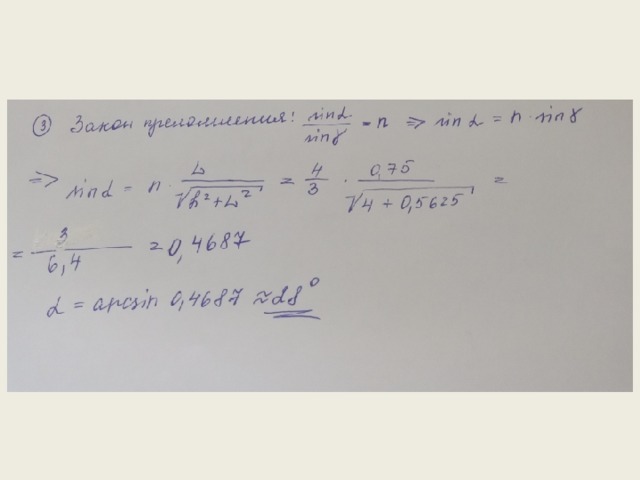 ③ Закон преломления: sinα/sinγ = n => sin α = n · sinγ
=> sinα = n · L/√(h²+L²) = 4/3 · 0,75/√(4 + 0,5625) =
= 3/6,4 = 0,4687
α = arcsin 0,4687 ≈ 28°